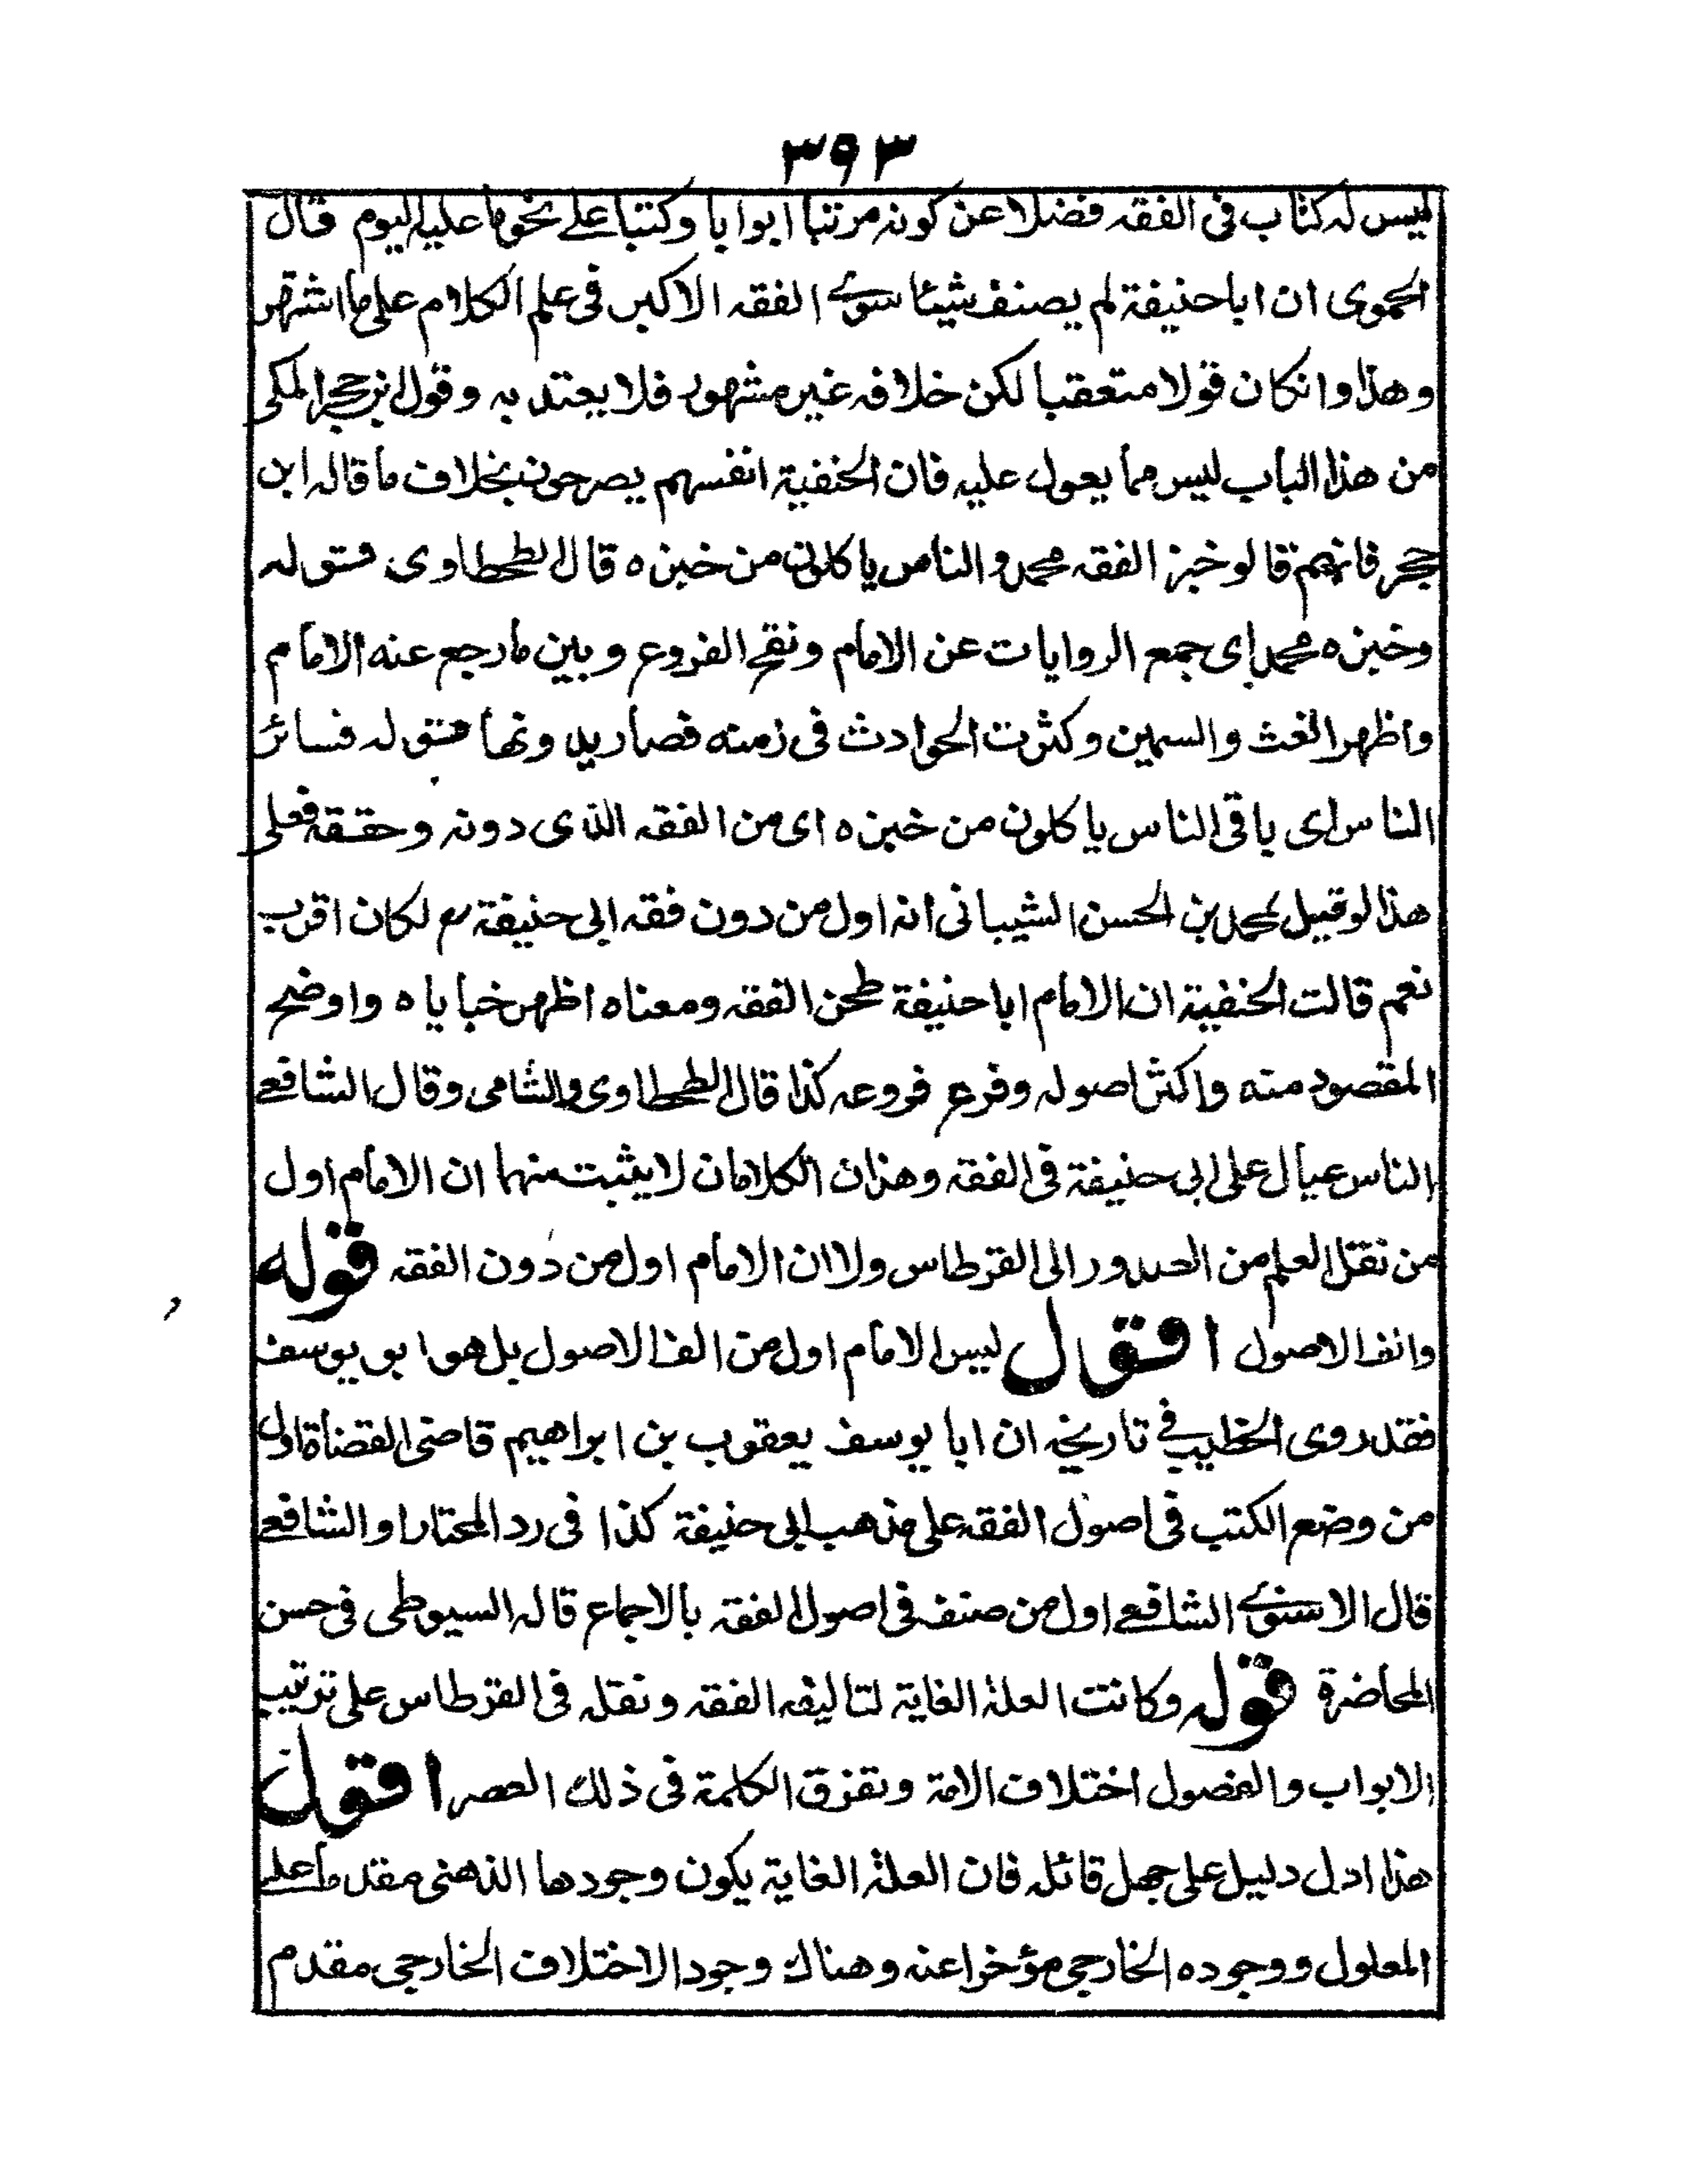 ٣٩٣
ليس له كتاب فى الفقه فضلا عن كونه مرتبا ابوابا وكتبا على نحو ما عليه اليوم قال
الحموى ان اباحنيفة لم يصنف شيئا سوى الفقه الاكبر فى علم الكلام على ما اشتهر
وهذا وانكان قولا متعقبا لكن خلافه غير مشهور فلا يعتد به وقول ابن حجر المكى
من هذا الباب ليس مما يعول عليه فان الحنفية انفسهم يصرحون بخلاف ما قاله ابن
حجر فانهم قالو خبز الفقه محمد والناس ياكلون من خبزه قال الطحطاوى قوله
وخبزه محمد اى جمع الروايات عن الامام ونقح الفروع وبين ما رجع عنه الامام
واظهر الغث والسمين وكثرت الحوادث فى زمنه فصار يدونها قوله فسائر
الناس اى باقى الناس ياكلون من خبزه اى من الفقه الذى دونه وحققه فعلى
هذا لو قيل لمحمد بن الحسن الشيبانى انه اول من دون فقه ابى حنيفة رح لكان اقرب
نعم قالت الحنفية ان الامام اباحنيفة طحن الفقه ومعناه اظهر خباياه واوضح
المقصود منه واكثر اصوله وفرع فروعه كذا قال الطحطاوى والشامى وقال الشافعى
الناس عيال على ابى حنيفة فى الفقه وهذان الكلامان لا يثبت منهما ان الامام اول
من نقل العلم من الصدور الى القرطاس ولا ان الامام اول من دون الفقه قوله
وانف الاصول اقول ليس الامام اول من الف الاصول بل هو ابو يوسف
فقد روى الخطيب فى تاريخه ان ابا يوسف يعقوب بن ابراهيم قاضى القضاة اول
من وضع الكتب فى اصول الفقه على مذهب ابى حنيفة كذا فى رد المحتار او الشافعى
قال الاسنوى الشافعى اول من صنف فى اصول الفقه بالاجماع قاله السيوطى فى حسن
المحاضرة قوله وكانت العلة الغاية لتاليف الفقه ونقله فى القرطاس على ترتيب
الابواب والفصول اختلاف الامة وتفرق الكلمة فى ذلك العصر اقول
هذا ادل دليل على جهل قائله فان العلة الغاية يكون وجودها الذهنى مقدما على
المعلول ووجوده الخارجى مؤخرا عنه وهناك وجود الاختلاف الخارجى مقدم